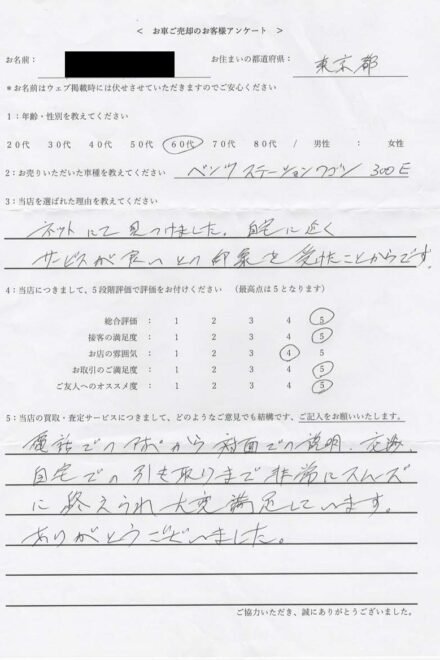 < お車ご売却のお客様アンケート >
お名前： お住まいの都道府県： 東京都
*お名前はウェブ掲載時には伏せさせていただきますのでご安心ください
1：年齢・性別を教えてください
20代 30代 40代 50代 60代 70代 80代 / 男性 ： 女性
2：お売りいただいた車種を教えてください ベンツ ステーションワゴン 300E
3：当店を選ばれた理由を教えてください
ネットにて見つけました。自宅に近く
サービスが良いとの印象を受けたことからです。
4：当店につきまして、5段階評価で評価をお付けください （最高点は5となります）
総合評価 ： 1 2 3 4 5
接客の満足度 ： 1 2 3 4 5
お店の雰囲気 ： 1 2 3 4 5
お取引のご満足度 ： 1 2 3 4 5
ご友人へのオススメ度 ： 1 2 3 4 5
5：当店の買取・査定サービスにつきまして、どのようなご意見でも結構です、ご記入をお願いいたします。
電話でのアポから対面での説明、交渉、
自宅での引き取りまで非常にスムーズ
に終えられ大変満足しています。
ありがとうございました。
ご協力いただき、誠にありがとうございました。